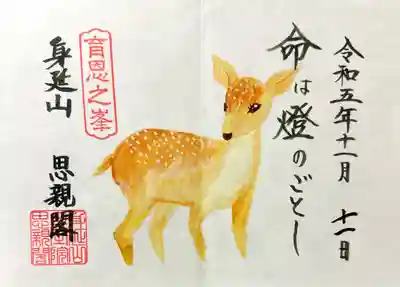 令和五年十一月 十一日
命は燈のごとし
育恩之峯
身延山 思親閣